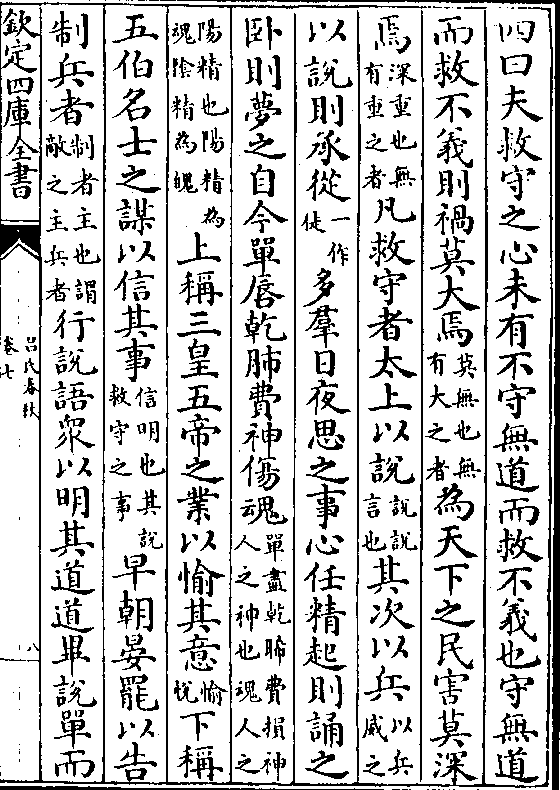 四曰夫救守之心未有不守無道而救不義也守無道
而救不義則禍莫大焉莫無也無有大之者為天下之民害莫深
焉深重也無有重之者凡救守者太上以說說說言也其次以兵以兵威之
以說則承從一作徒多羣日夜思之事心任精起則誦之
卧則夢之自今單唇乾肺費神傷魂單盡乾晞費損神人之神也魂人之
陽精也陽精為魂陰精為魄上稱三皇五帝之業以愉其意愉悅下稱
五伯名士之謀以信其事信明也其說救守之事早朝晏罷以告
制兵者制者主也謂敵之主兵者行說語衆以明其道道畢說單而
欽定四庫全書
呂氏春秋
卷七
八